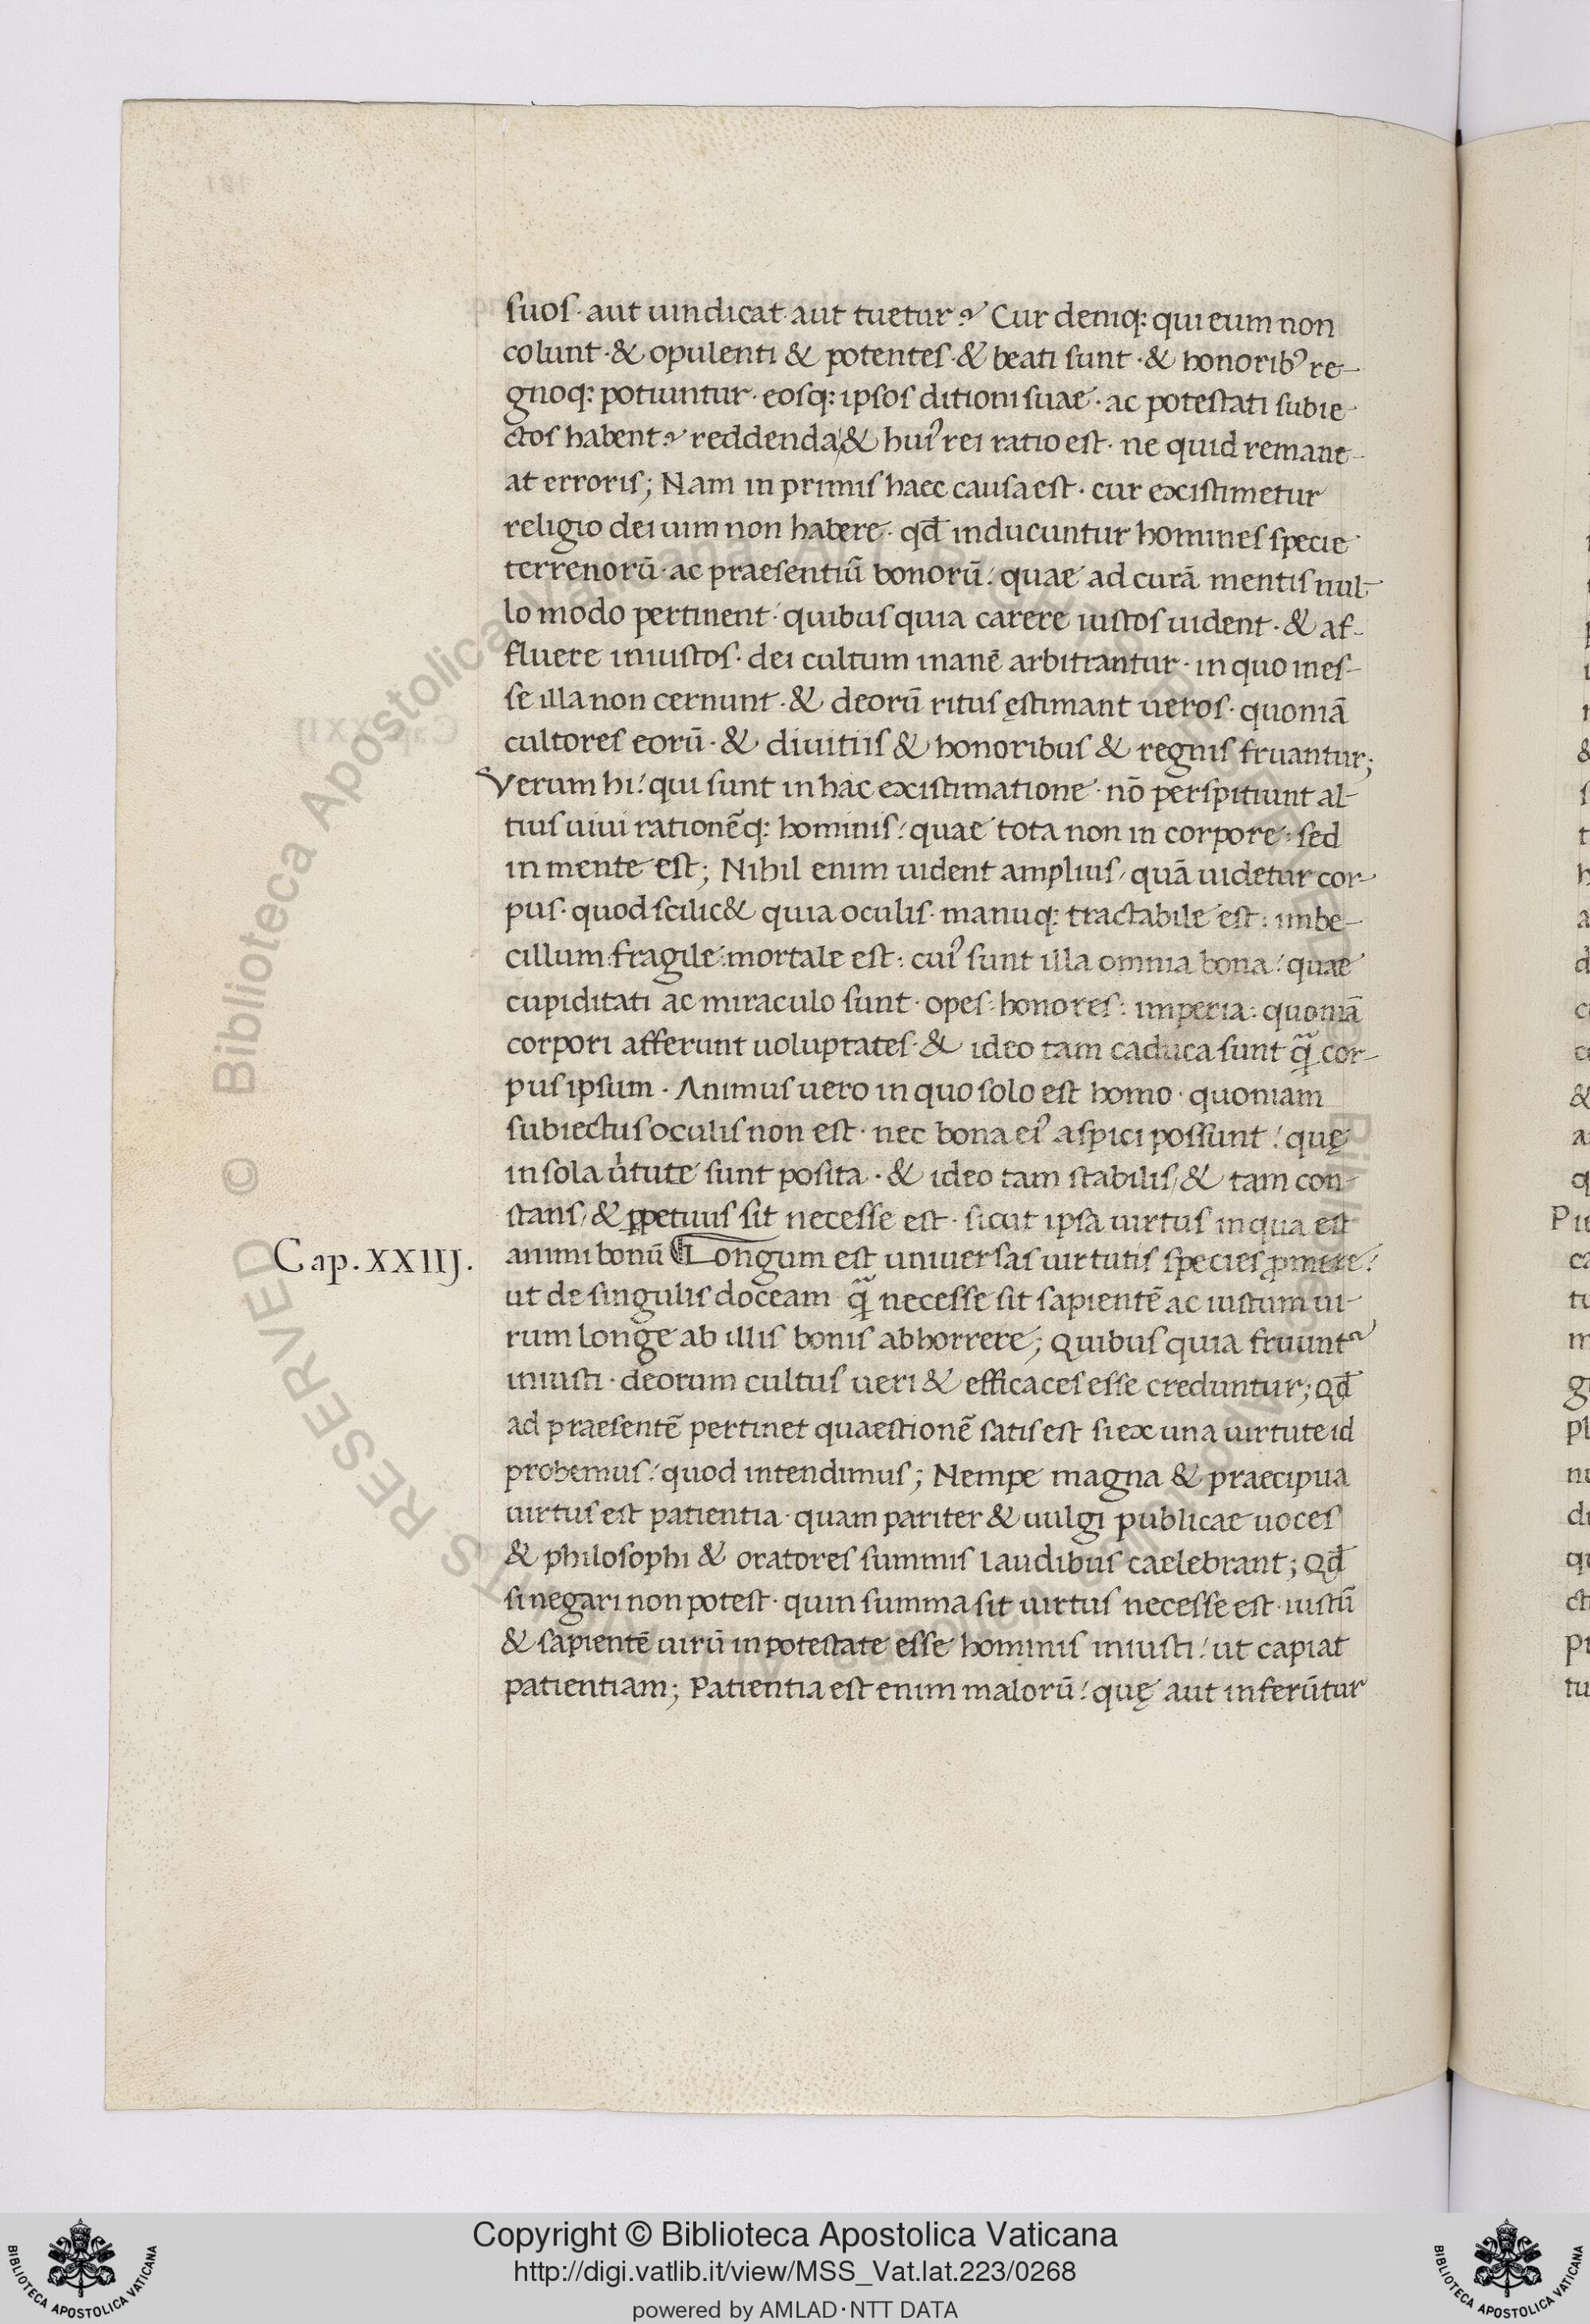 suos · aut uindicat aut tuetur ? Cur deniq: qui eum non
colunt · & opulenti & potentes · & beati sunt · & honorib᾽ re-
gnoq: potiuntur · eosq: ipsos ditioni suae · ac potestati subie-
ctos habent ? reddenda & hui᾽ rei ratio est · ne quid remane-
at erroris; Nam in primis haec causa est · cur existimetur
religio dei uim non habere · qd̄ inducuntur homines specie
terrenorū · ac praesentiū bonorū! quae ad curā mentis nul-
lo modo pertinent · quibus quia carere iustos uident · & af-
fluere iniustos · dei cultum inanē arbitrantur · in quo ines-
se illa non cernunt · & deorū ritus ęstimant ueros · quoniā
cultores eorū · & diuitiis & honoribus & regnis fruantur;
Verum hi! qui sunt in hac existimatione · nō perspitiunt al-
tius uiui rationēq: hominis! quae tota non in corpore: sed
in mente est; Nihil enim uident amplius, quā uidetur cor-
pus · quod scilic& quia oculis · manuq: tractabile est: imbe-
cillum: fragile: mortale est: cui᾽ sunt illa omnia bona! quae
cupiditati ac miraculo sunt · opes: honores: imperia: quoniā
corpori afferunt uoluptates · & ideo tam caduca sunt q̄ cor-
pus ipsum · Animus uero in quo solo est homo · quoniam
subiectus oculis non est · nec bona ei᾽ aspici possunt! quę
in sola u̓tute sunt posita · & ideo tam stabilis, & tam con-
stans, & ꝑpetuus sit necesse est · sicut ipsa uirtus in qua est
Cap. XXIIJ.
animi bonū Longum est uniuersas uirtutis species ꝓmere!
ut de singulis doceam q̄ necesse sit sapientē ac iustum ui-
rum longe ab illis bonis abhorrere; Quibus quia fruunt᾽
iniusti · deorum cultus ueri & efficaces esse creduntur; Qd̄
ad praesentē pertinet quaestionē satis est si ex una uirtute id
probemus! quod intendimus; Nempe magna & praecipua
uirtus est patientia · quam pariter & uulgi publicae uoces
& philosophi & oratores summis laudibus caelebrant; Qd̄
si negari non potest · quin summa sit uirtus necesse est · iustū
& sapientē uirū in potestate esse hominis iniusti! ut capiat
patientiam; Patientia est enim malorū! quę aut inferūtur
© Biblioteca Apostolica Vaticana
RESERVED
Copyright © Biblioteca Apostolica Vaticana
http://digi.vatlib.it/view/MSS_Vat.lat.223/0268
powered by AMLAD·NTT DATA
BIBLIOTECA APOSTOLICA VATICANA
BIBLIOTECA APOSTOLICA VATICANA